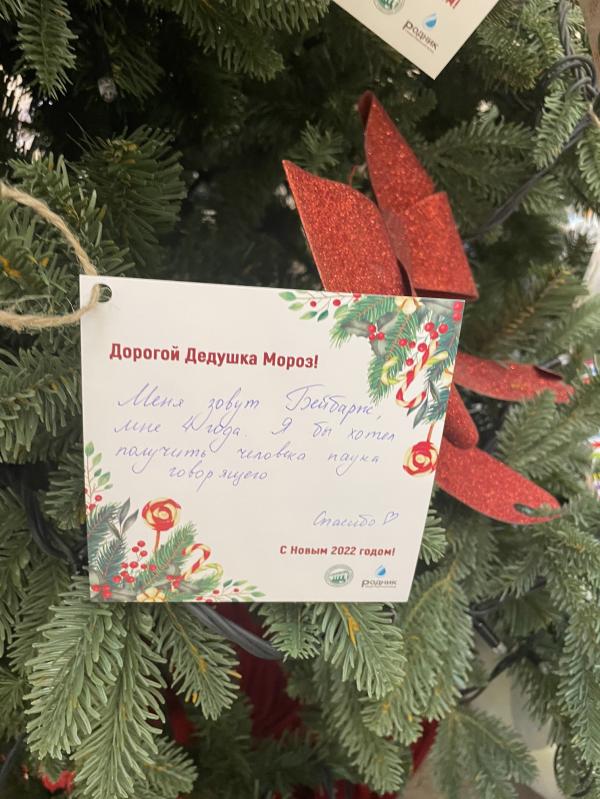 РОДНИК
Дорогой Дедушка Мороз!
Меня зовут Бейбарыс,
мне 4 года. Я бы хотел
получить человека паука
говорящего
Спасибо ♡
С Новым 2022 годом!
РОДНИК